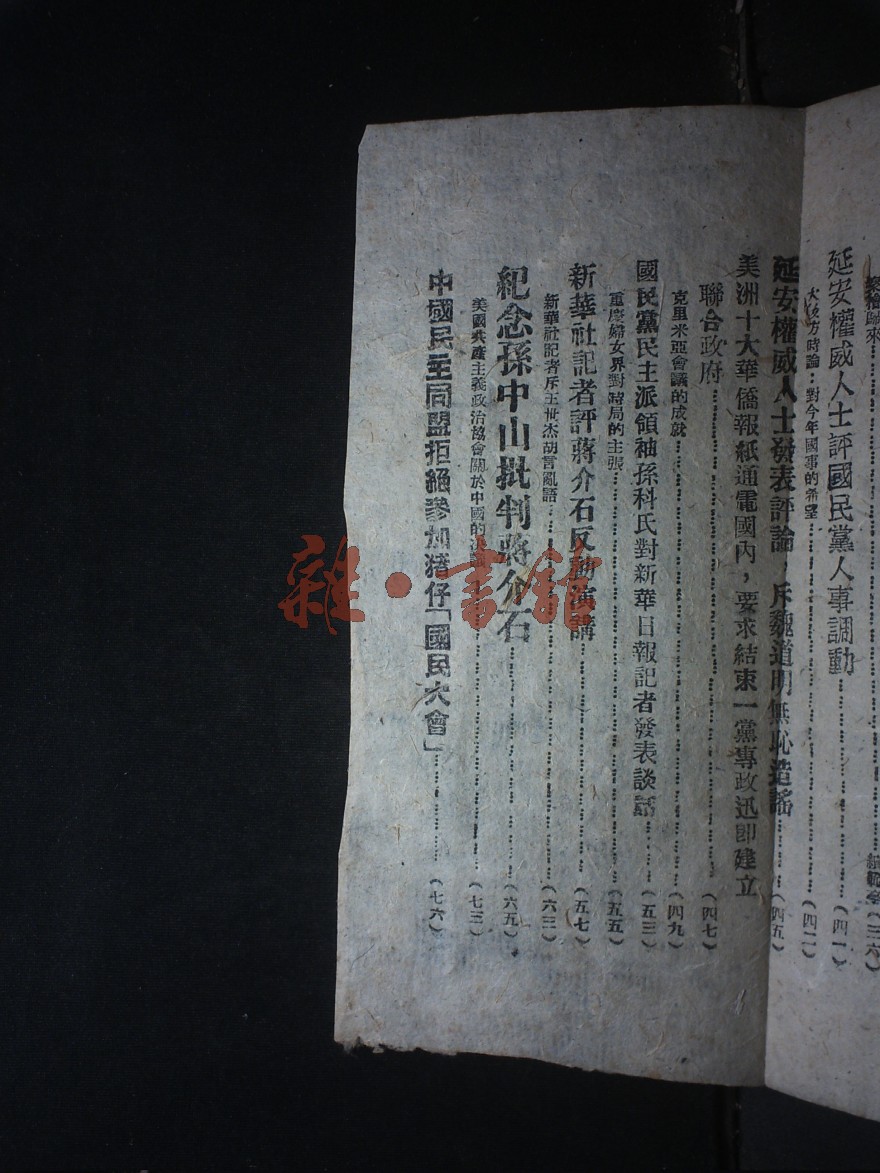 歸來……續範亭(三六)
延安權威人士評國民黨人事調動……(四一)
大後方時論：對今年國事的希望……(四二)
延安權威人士發表評論，斥魏道明無恥造謠……(四五)
美洲十大華僑報紙通電國內，要求結束一黨專政迅即建立
聯合政府……(四七)
克里米亞會議的成就……(四九)
國民黨民主派領袖孫科氏對新華日報記者發表談話……(五三)
重慶婦女界對時局的主張……(五五)
新華社記者評蔣介石反動演講……(五七)
新華社記者斥王世杰胡言亂語……(六三)
紀念孫中山批判蔣介石……(六五)
美國共產主義政治協會關於中國的決議……(七三)
中國民主同盟拒絕參加猪仔「國民大會」……(七六)
雜·書館